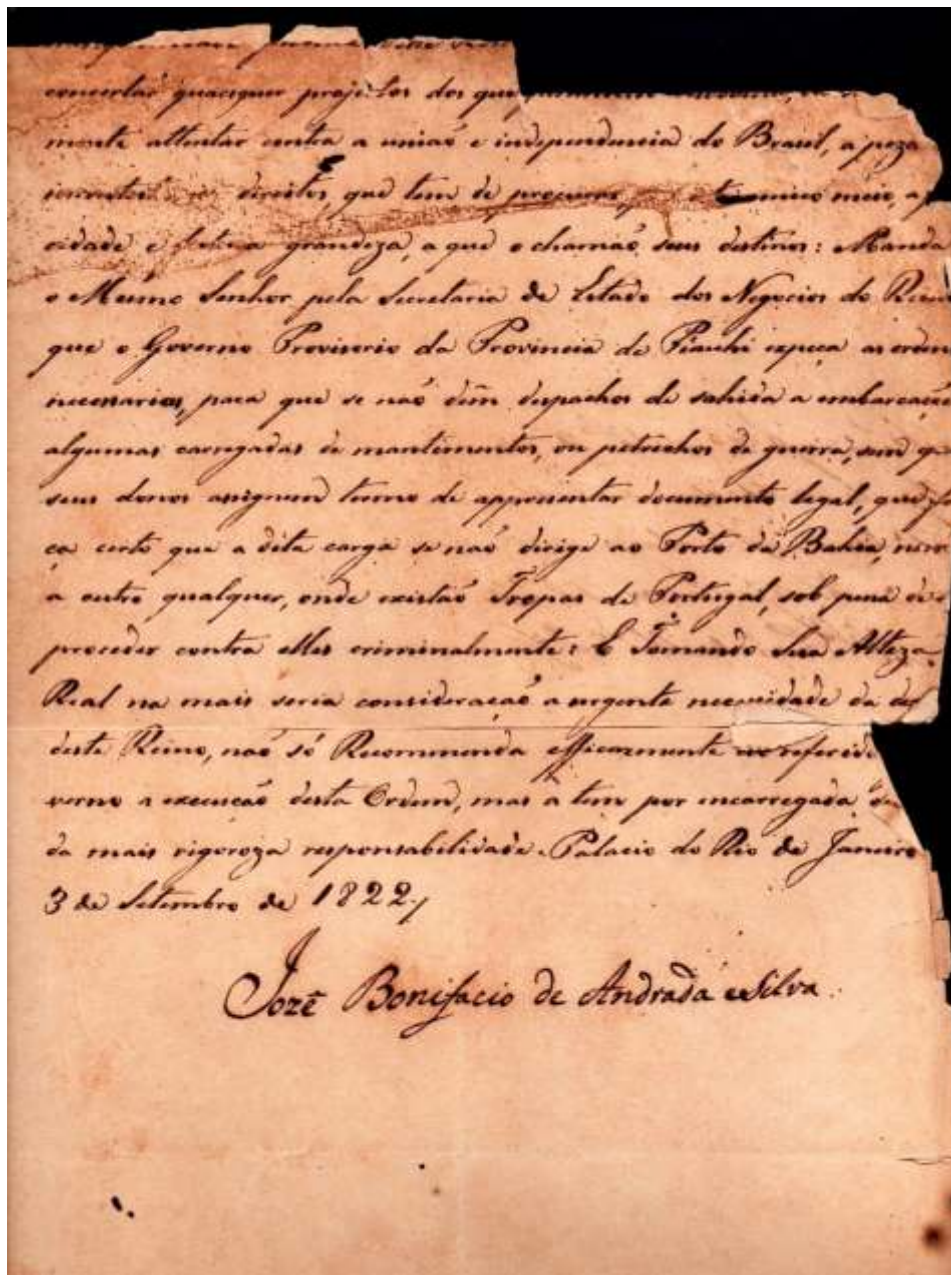 concertar quaesquer projectos dos que
mente attentar contra a união e independencia do Brasil, a peza
direitos, que tem de procurar, unico meio, a
cidade e futura grandeza, a que o chamaõ seus destinos: Manda
o Mesmo Senhor pela Secretaria de Estado dos Negocios do Rein
que o Governo Provisorio da Provincia do Piauhi expeça as orden
necessarias, para que se naõ dêm despachos de sahida a embarcaçoẽ
algumas carregadas de mantimentos, ou petrechos de guerra, sem q
seus donos assignem termo de appresentar documento legal, que f
ça certo que a dita carga se naõ dirige ao Porto da Bahia, nem
a outro qualquer, onde existaõ Tropas de Portugal, sob pena de
proceder contra elles criminalmente: E Tomando Sua Alteza
Real na mais seria consideraçaõ a urgente necessidade da def
deste Reino, naõ só Recommenda efficazmente ao referido
verno a execuçaõ desta Ordem, mas a tem por encarregada de
da mais rigoroza responsabilidade. Palacio do Rio de Janeiro
3 de Setembro de 1822./
Jozé Bonifacio de Andrada e Silva.